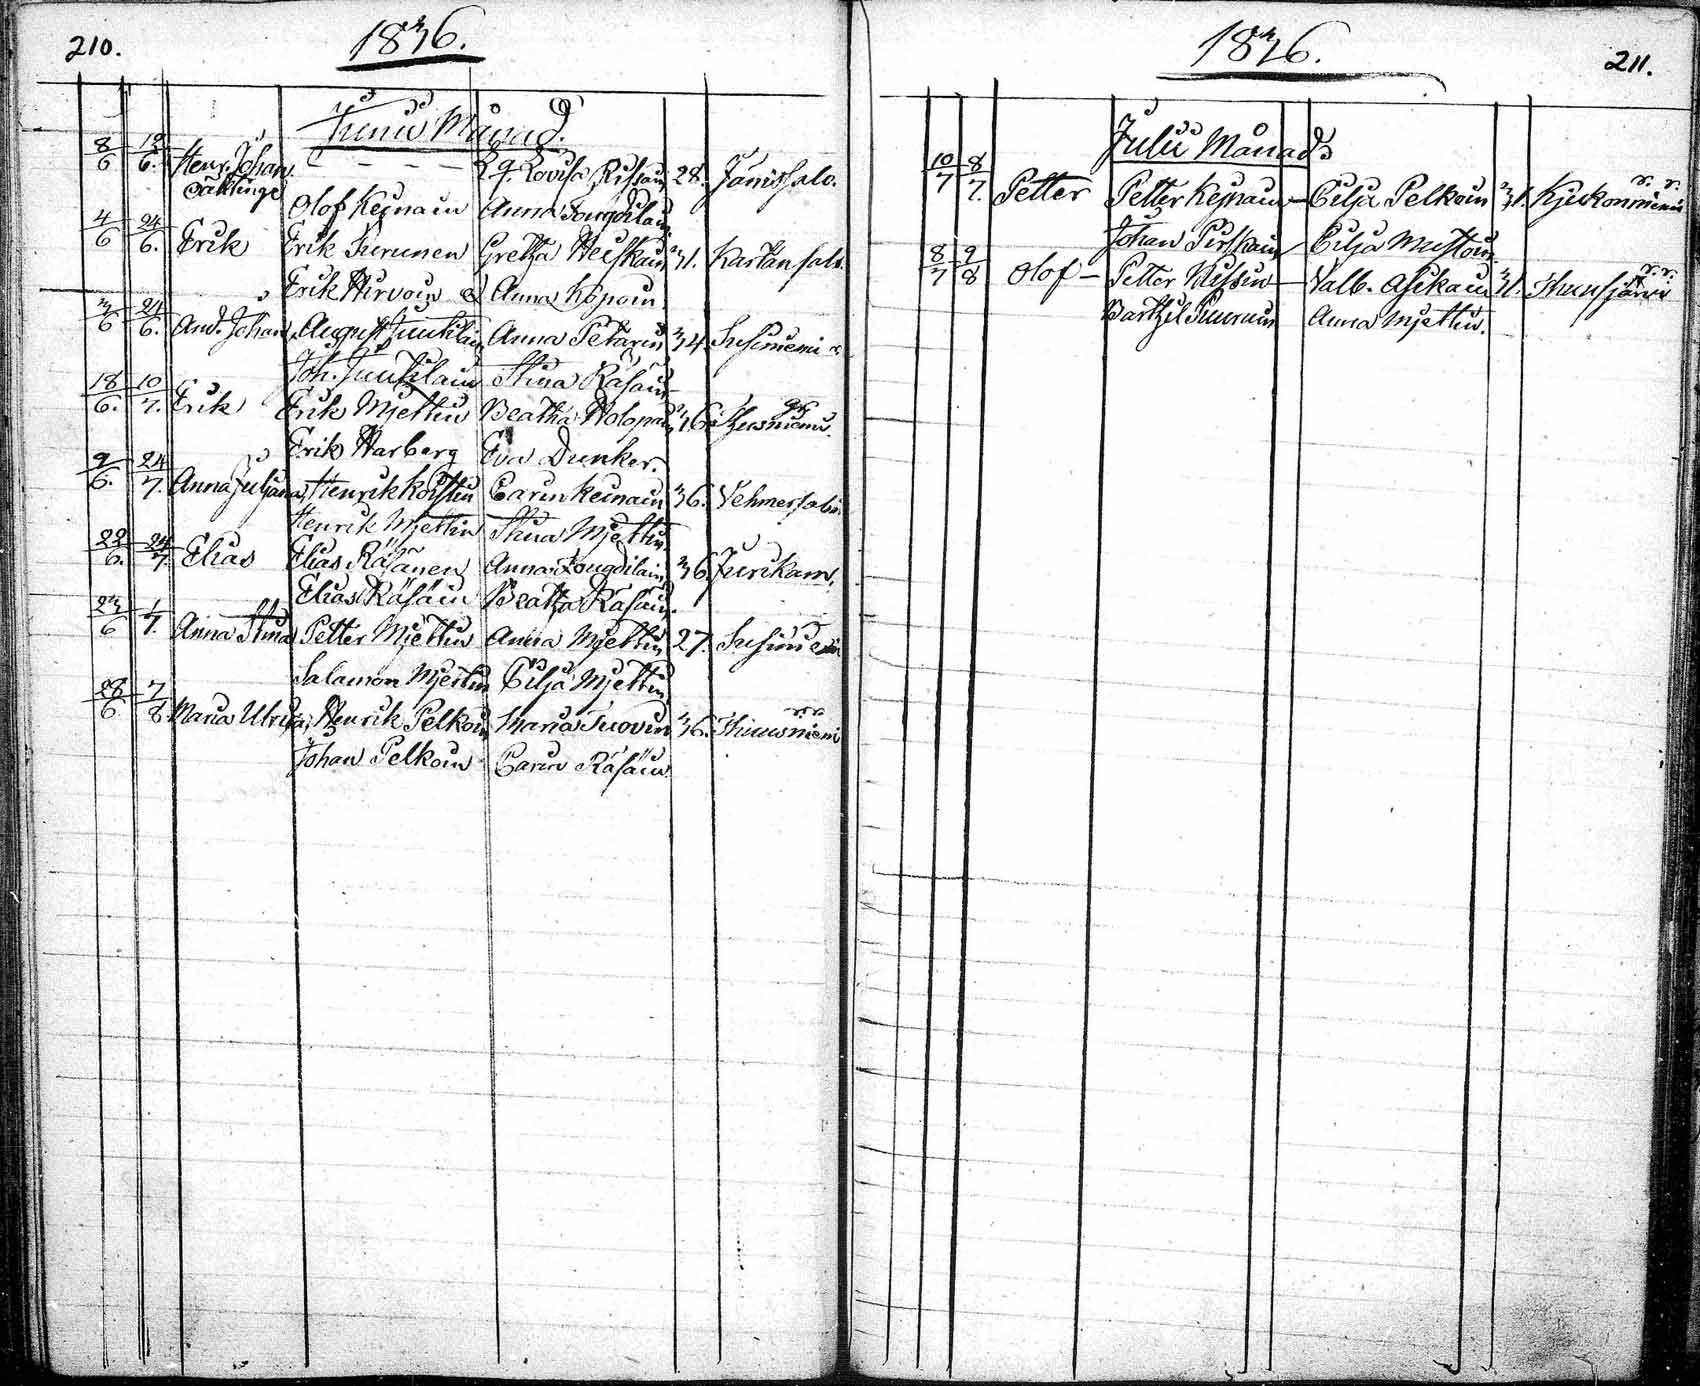 210.
1836.
Junii Månad.
8/6 12/6. Henr. Johan - - - - Q. q. Lovisa Rissain 28. Jänissalo.
Olof Keinain Anna
4/6 24/6. Erik Erik Turunen Gretha Heiskain 31. Kartansalo.
Erik Hirvoin Anna Kopoin
3/6 24/6. And. Johan August Juutilain Anna Petarin 34. Susiniemi
Joh. Juutilain Stina Räsäin
18/6. 10/7. Erik Erik Mjettin Beatha Holopain 36.
Erik Warberg Eva Dunker.
9/6. 24/7. Anna Juljana Henrik Koistin Carin Keinain 36. Vehmersalmi
Henrik Mjettin Stina Mjettin
22/6. 24/7. Elias Elias Räsänen Anna 36. Jurikam.
Elias Räsäin Beatha Räsäin.
23/6 1/7. Anna Stina Petter Mjettin Anna Mjettin 27. Susiniemi
Salamon Mjettin Cilja Mjettin
28/6 7/8 Maria Ulrika Henrik Pelkoin Maria Tuovin 36.
Johan Pelkoin Carin Räsäin
1836.
211.
Julii Månad
10/7 8/7. Petter Petter Kejnain - Cilja Pelkoin 31.
Johan Pirskain Cilja Mustoin
8/7 9/8 Olof - Petter Nissin - Valb. Asikain 31.
Barthil Tuurain Anna Mjettin.